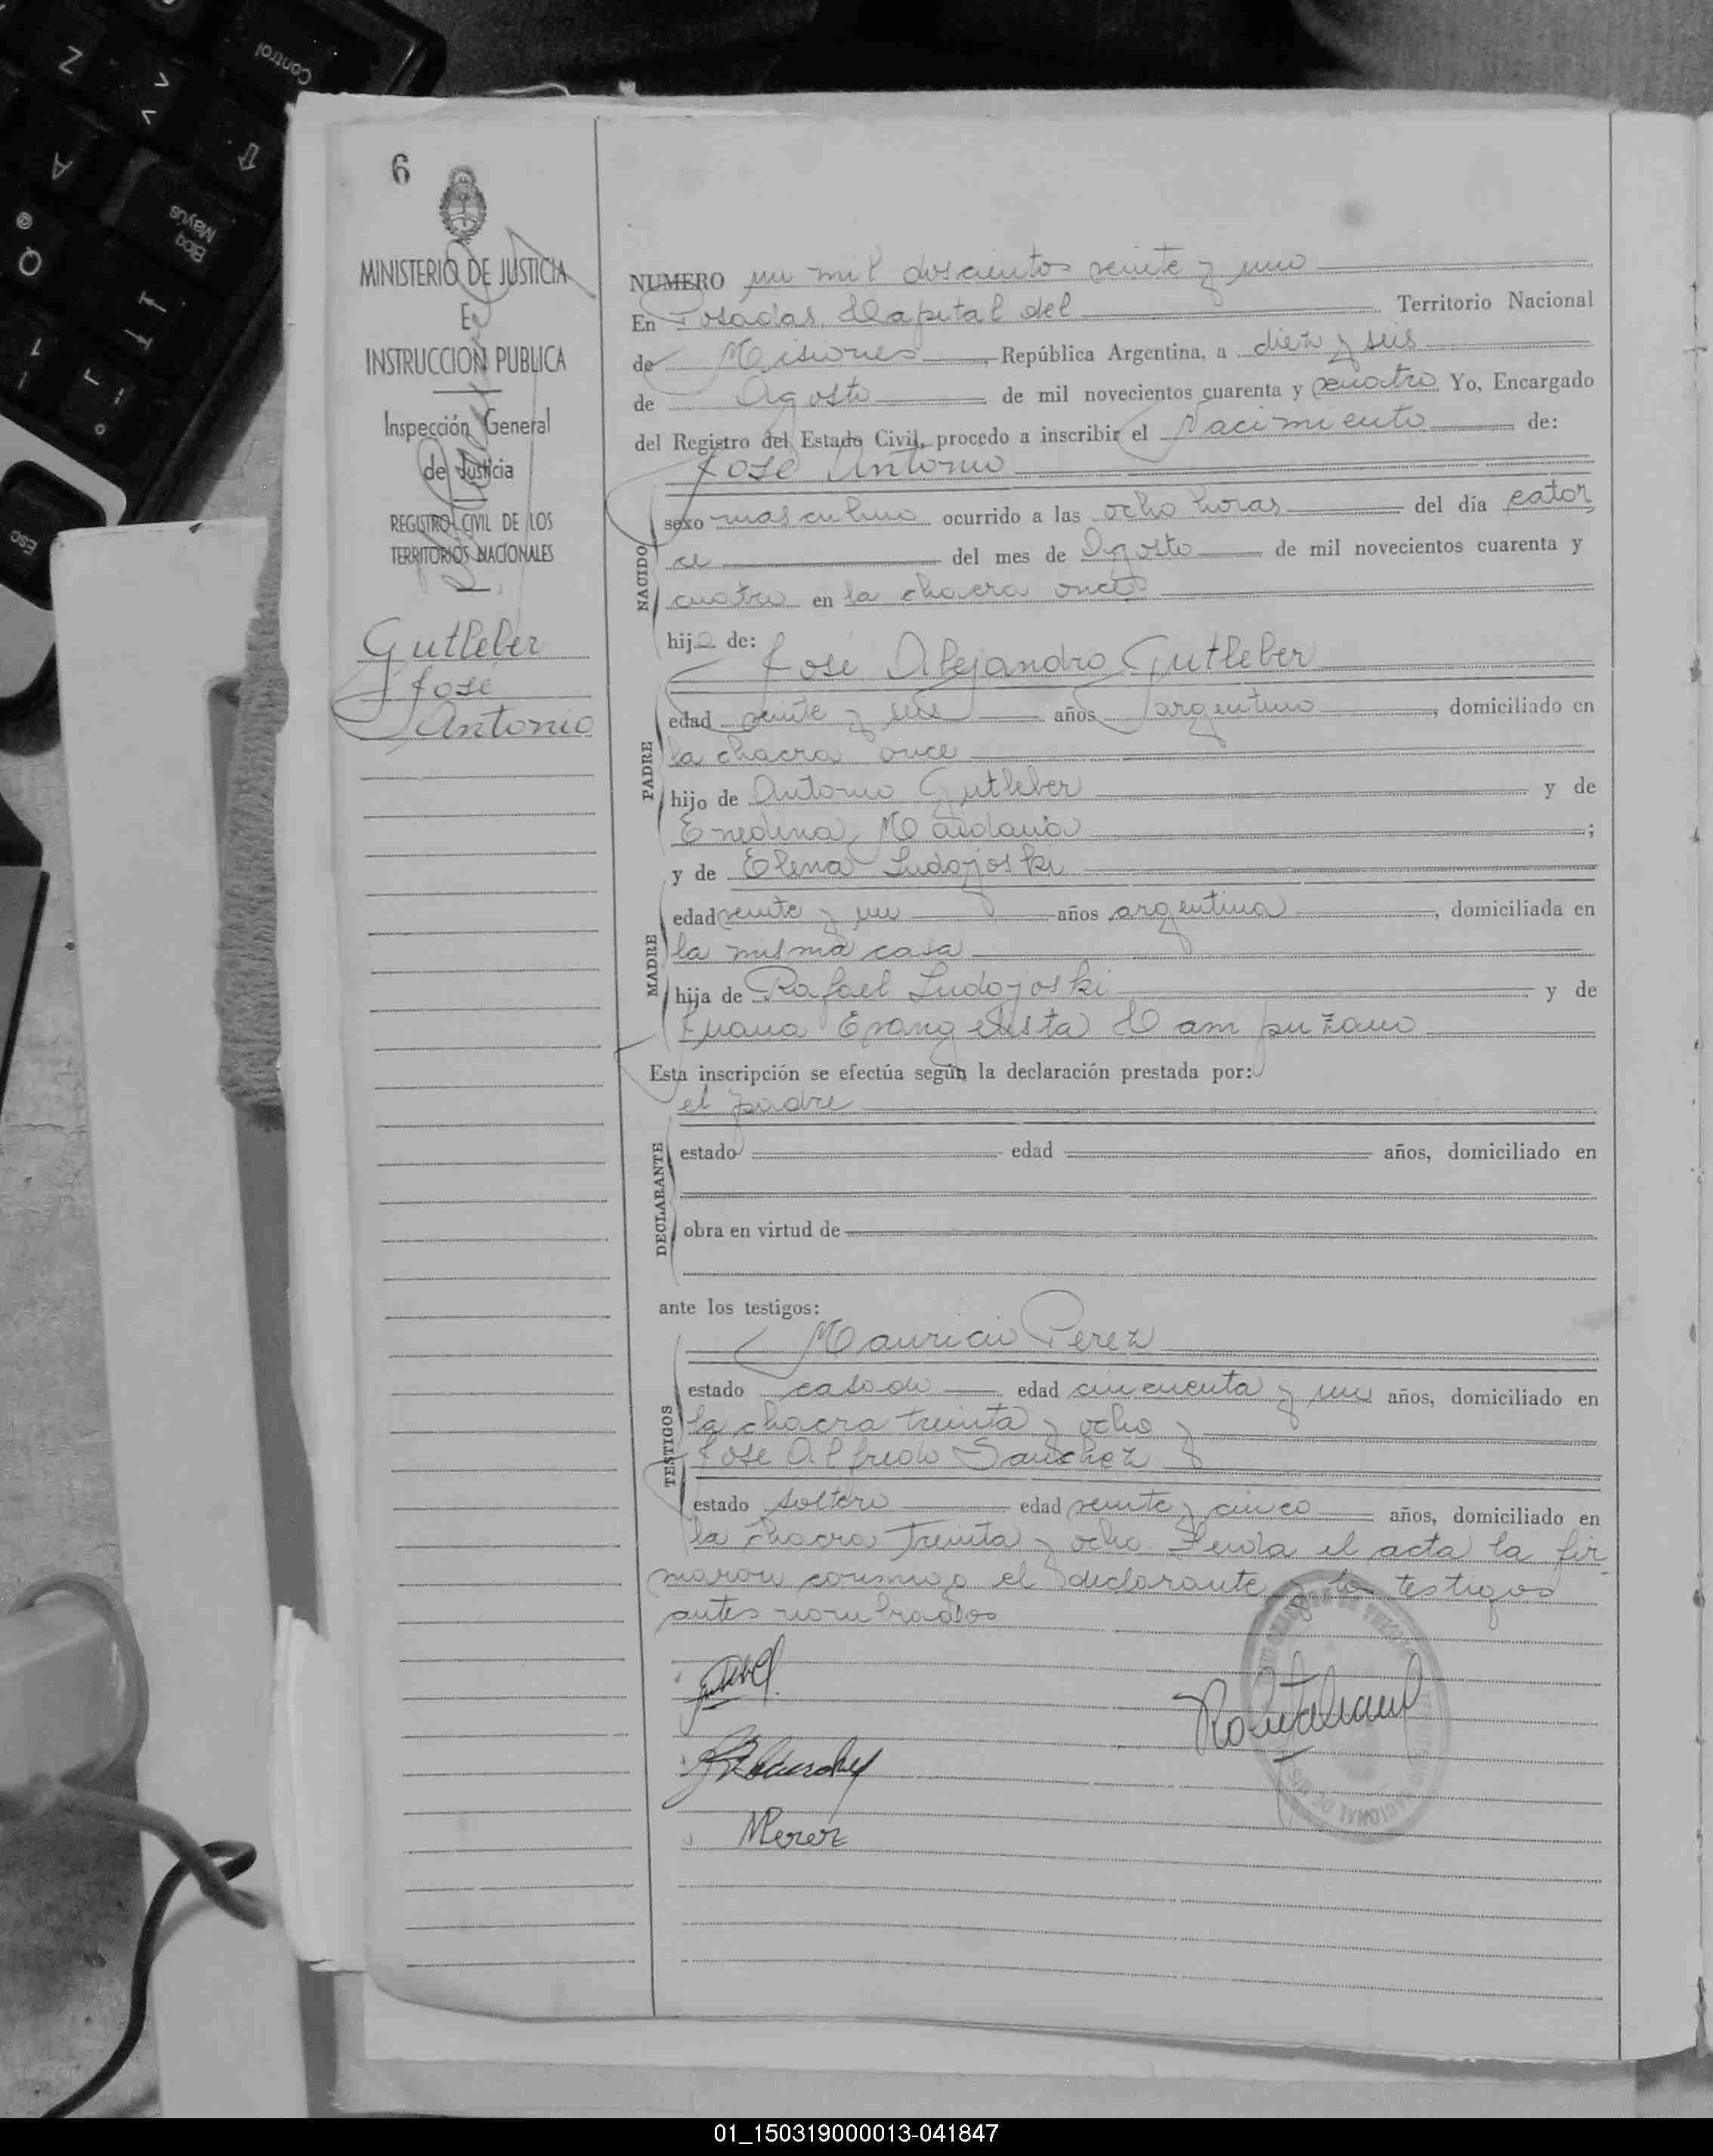 Control
Z
A
Bloq
Mayus
Q
Esc
6
MINISTERIO DE JUSTICIA
E
INSTRUCCION PUBLICA
Inspección General
de Justicia
REGISTRO CIVIL DE LOS
TERRITORIOS NACIONALES
Gutleber
José
Antonio
NUMERO un mil doscientos veinte y uno
En Posadas, Capital del Territorio Nacional
de Misiones, República Argentina, a diez y seis
de Agosto de mil novecientos cuarenta y cuatro Yo, Encargado
del Registro del Estado Civil, procedo a inscribir el Nacimiento de:
José Antonio
NACIDO
sexo masculino ocurrido a las ocho horas del día cator
ce del mes de Agosto de mil novecientos cuarenta y
cuatro en la chacra once
hijo de:
José Alejandro Gutleber
PADRE
edad veinte y seis años argentino, domiciliado en
la chacra once
hijo de Antonio Gutleber y de
Enedina Maidana;
y de Elena Ludojoski
MADRE
edad veinte y un años argentina, domiciliada en
la misma casa
hija de Rafael Ludojoski y de
Juana Evangelista Campuzano
Esta inscripción se efectúa según la declaración prestada por:
el padre
DECLARANTE
estado edad años, domiciliado en
obra en virtud de
ante los testigos:
Mauricio Perez
TESTIGOS
estado casado edad cincuenta y un años, domiciliado en
la chacra treinta y ocho y
José Alfredo Sanchez
estado soltero edad veinte y cinco años, domiciliado en
la chacra treinta y ocho. Leida el acta la fir
maron conmigo el declarante y los testigos
antes nombrados
MPerez
01_150319000013-041847